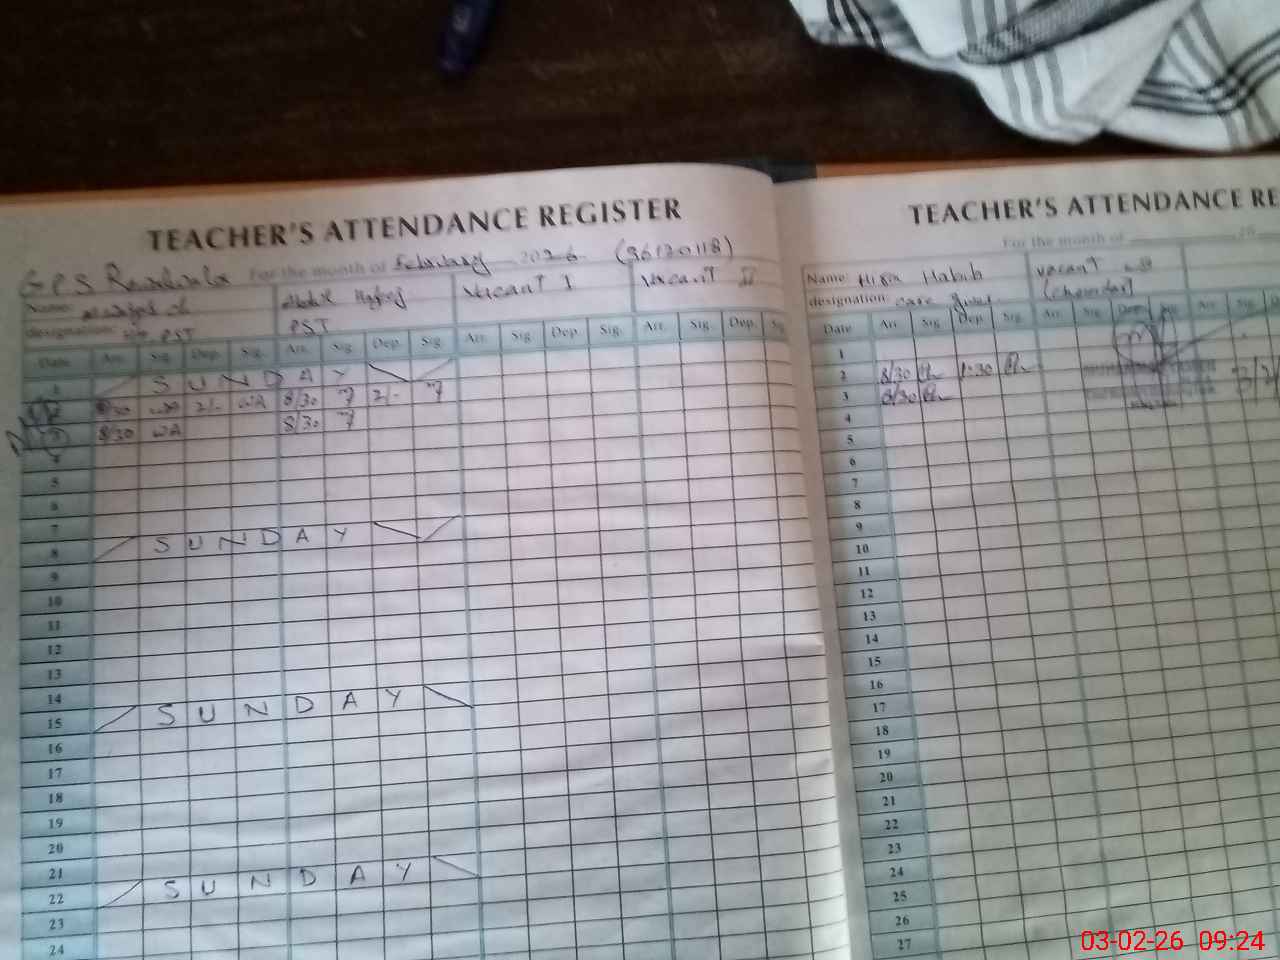 TEACHER'S ATTENDANCE REGISTER
G.P.S For the month of February 2026 (36130118)
Name:
designation: PST
Abdul
PST
Vacant I
Vacant II
Date Arr. Sig. Dep. Sig. Arr. Sig. Dep. Sig. Arr. Sig. Dep. Sig. Arr. Sig. Dep. Sig.
1 SUNDAY
2 8/30 WA 2/- WA 8/30 2/-
3 8/30 WA 8/30
4
5
6
7
8 SUNDAY
9
10
11
12
13
14
15 SUNDAY
16
17
18
19
20
21
22 SUNDAY
23
24
TEACHER'S ATTENDANCE RE
For the month of 20
Name: Hira Habib
designation: Care
Vacant
Date Arr. Sig. Dep. Sig. Arr. Sig. Dep. Arr. Sig.
1
2 8/30 1:30
3 8/30
4
5
6
7
8
9
10
11
12
13
14
15
16
17
18
19
20
21
22
23
24
25
26
27
03-02-26 09:24